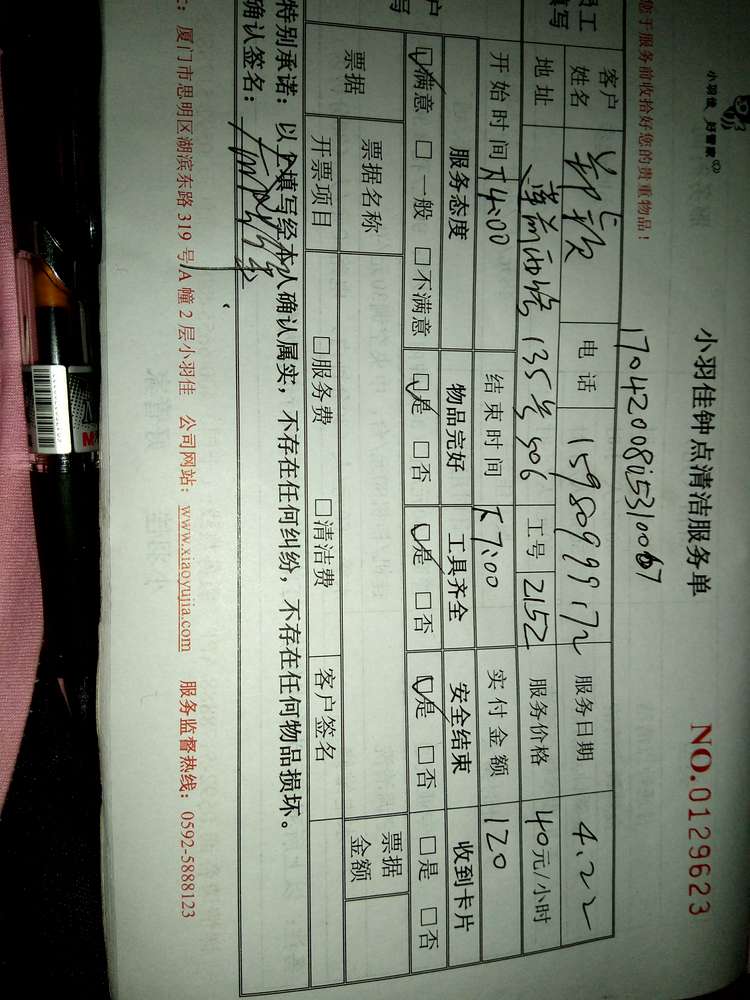 小羽佳 好管家
小羽佳钟点清洁服务单
NO.0129623
您于服务前收拾好您的贵重物品！
员工 填写
客户姓名 电话 15980999172 服务日期 4.22
地址 莲前西路 135号506 工号 2152 服务价格 40元/小时
开始时间 下4:00 结束时间 下7:00 实付金额 120
户 写
服务态度 物品完好 工具齐全 安全结束 收到卡片
☑满意 □一般 □不满意 ☑是 □否 ☑是 □否 ☑是 □否 □是 □否
票据 票据名称 票据金额
开票项目 □服务费 □清洁费 客户签名
特别承诺：以上填写经本人确认属实，不存在任何纠纷，不存在任何物品损坏。
确认签名：
：厦门市思明区湖滨东路 319 号/A 幢 2 层小羽佳 公司网站：www.xiaoyujia.com 服务监督热线：0592-5888123